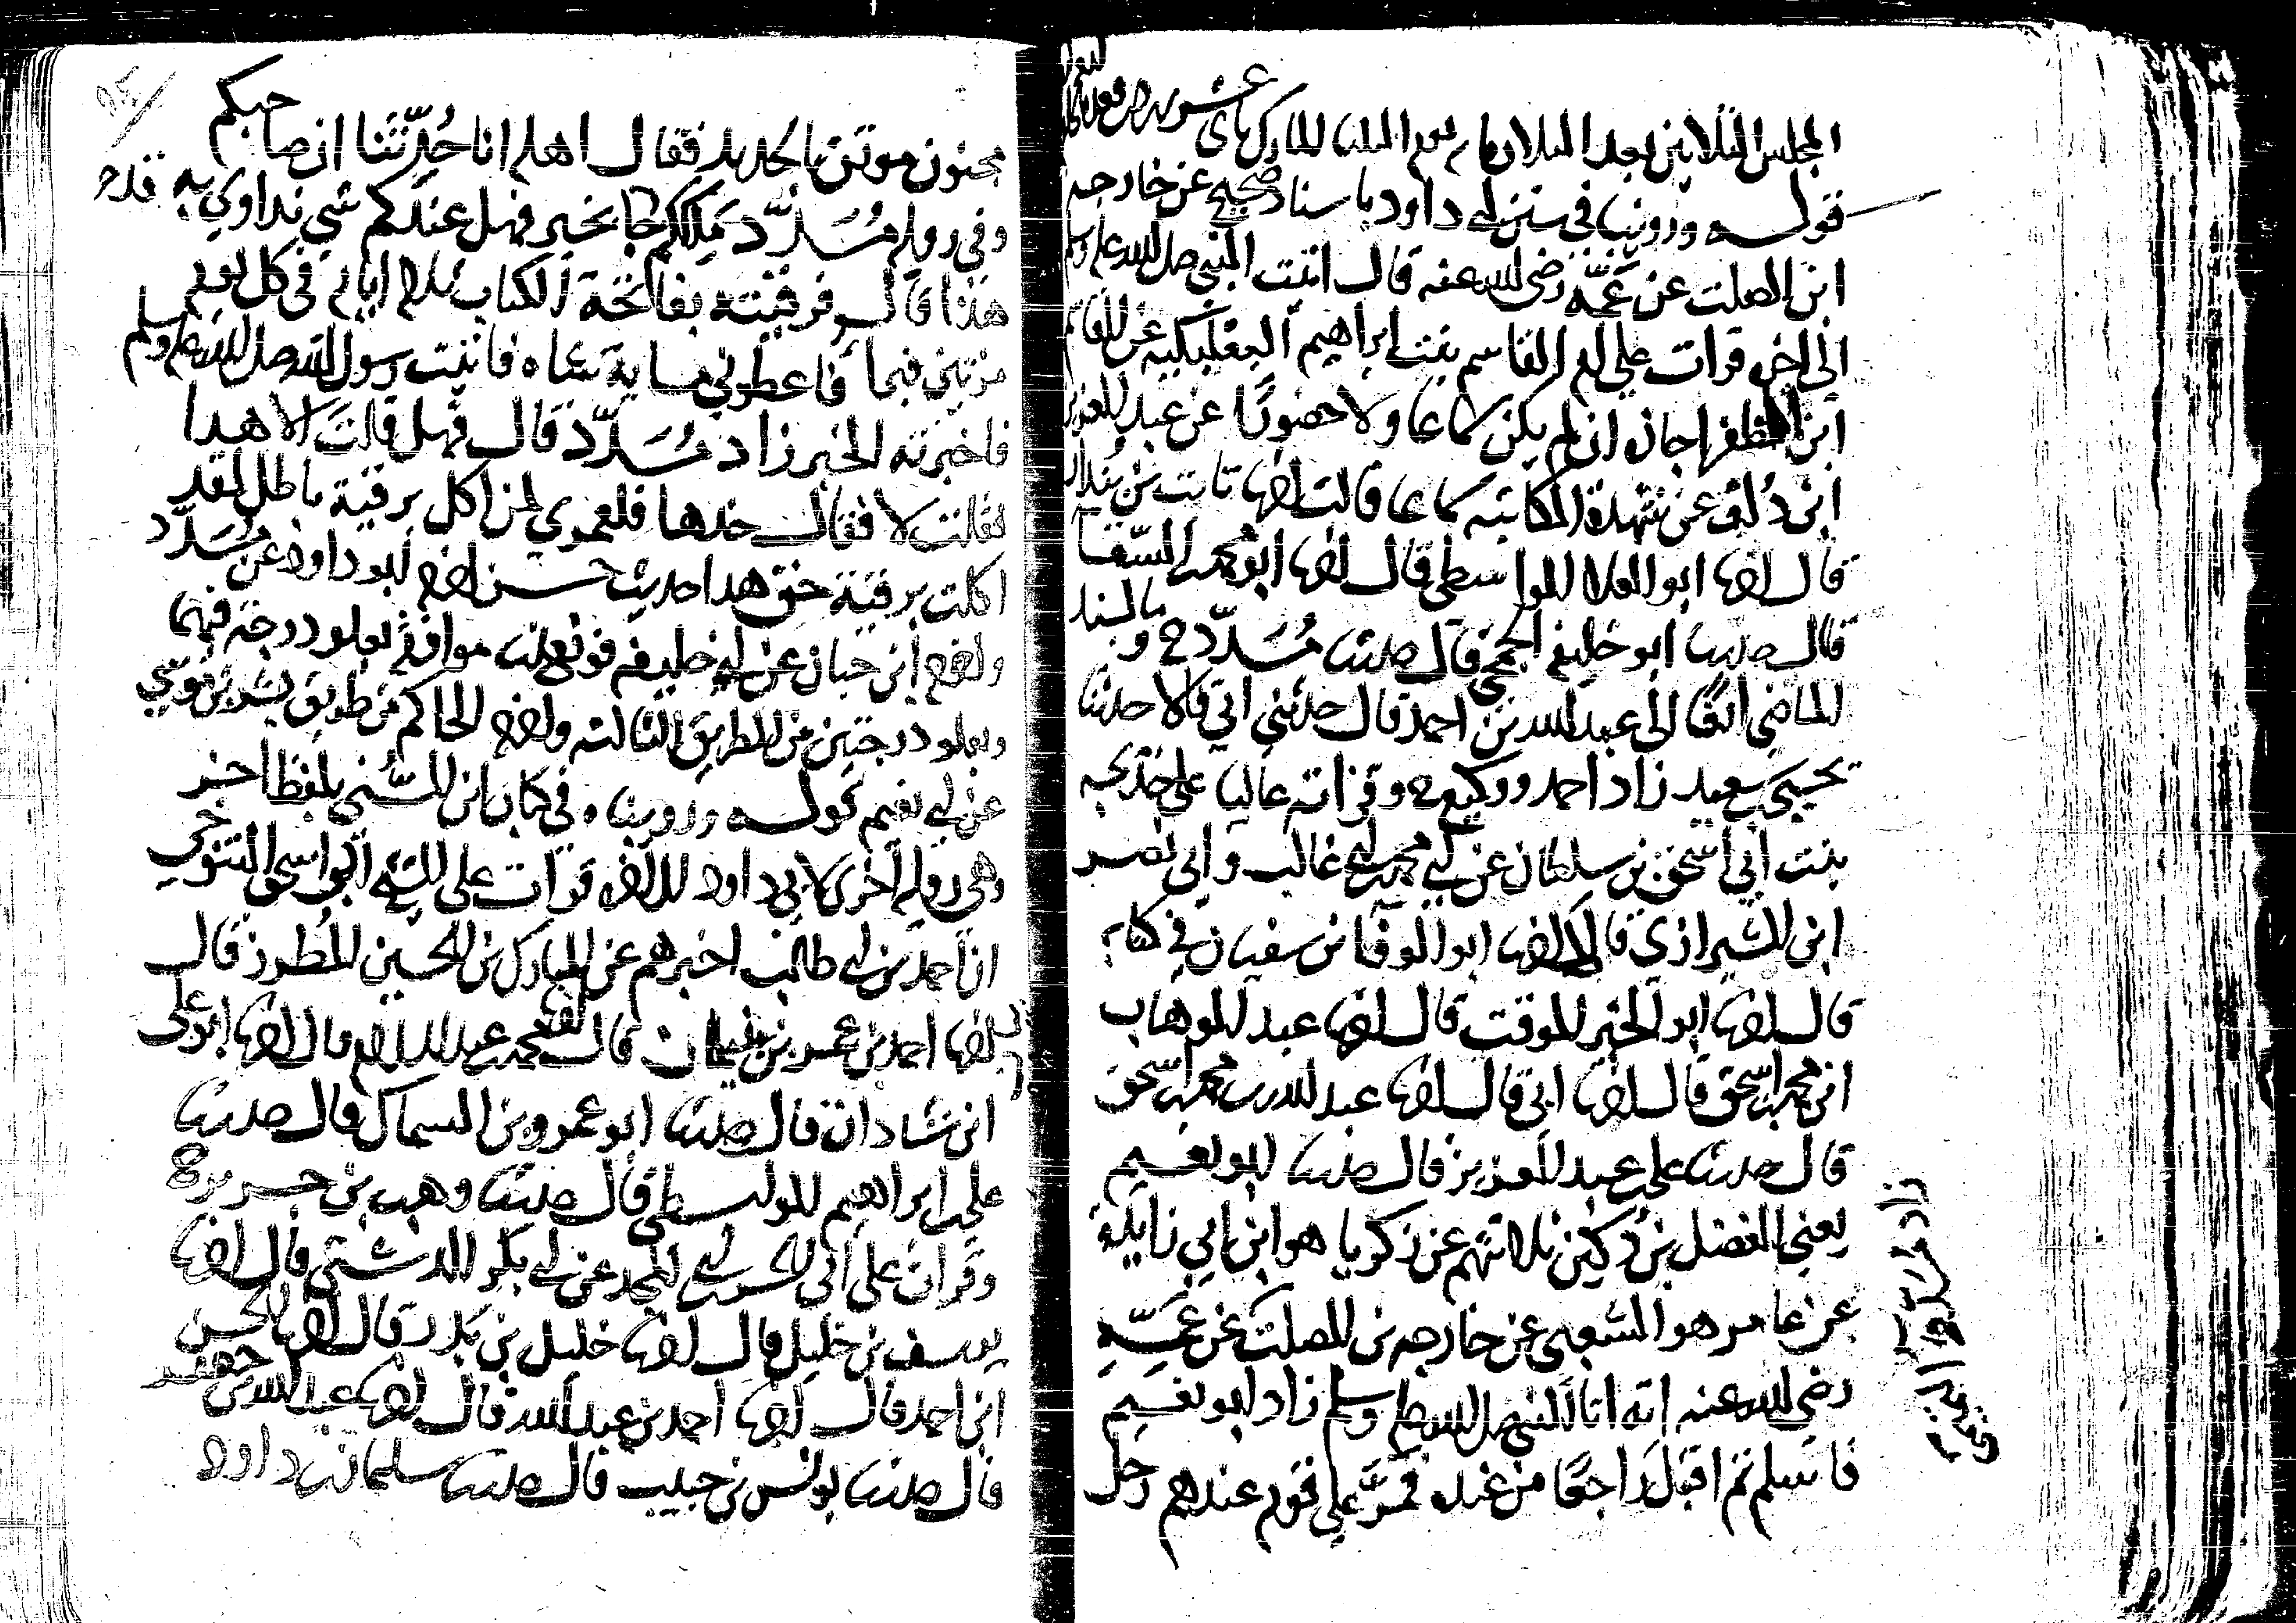 المجلس الثلاثين بعد الثلاثمائة يوم الثلاثا المبارك
قوله وروينا في سنن ابي داود باسناد صحيح عن خارجه
ابن الصلت عن عمه رضي الله عنه قال اتيت النبي صلى الله عليه وسلم
الى اخره قرات على ام القاسم بنت ابراهيم البعلبكيه عن القاسم
ابن المظفر اجازة ان لم يكن سماعا ولا حضورا عن عبد العزيز
ابن دلف عن شهدة الكاتبه سماعا قالت اخبرنا ثابت بن بندار
قال اخبرنا ابو العلا الواسطي قال اخبرنا ابو محمد السقا
قال حدثنا ابو خليفه الجمحي قال حدثنا مسدد ح وبالسند
الماضي انفا الى عبد الله بن احمد قال حدثني ابي قالا حدثنا
يحيى بن سعيد زاد احمد ووكيع ح وقراته عاليا على خديجه
بنت ابي اسحق بن سلطان عن ابي محمد بن ابي غالب وابي نصر
ابن الشيرازي قالا اخبرنا ابو الوفا بن سفيان في كتابه
قال اخبرنا ابو الخير الموقت قال اخبرنا عبد الوهاب
ابن محمد بن اسحق قال اخبرنا ابي قال اخبرنا عبد الله بن محمد بن اسحق
قال حدثنا علي بن عبد العزيز قال حدثنا ابو نعيم
يعني الفضل بن دكين ثلاثتهم عن زكريا هو ابن ابي زايدة
عن عامر هو الشعبي عن خارجه بن الصلت عن عمه
رضي الله عنه انه اتا النبي صلى الله عليه وسلم زاد ابو نعيم
فاسلم ثم اقبل راجعا من عنده فمر على قوم عندهم رجل
مجنون موثق بالحديد فقال اهله انا حدثنا ان صاحبكم
وفي رواية مسدد ملككم جا بخير فهل عندكم شي نداوي به
هذا قال فرقيته بفاتحة الكتاب ثلاثة ايام في كل يوم
مرتين فبرا فاعطوني ماية شاه فاتيت رسول الله صلى الله عليه وسلم
فاخبرته الخبر زاد مسدد قال فهل قلت الا هذا
فقلت لا فقال خذها فلعمري لمن اكل برقية باطل لقد
اكلت برقية حق هذا حديث حسن اخرجه ابو داود عن مسدد
واخرجه ابن حبان عن ابي خليفه فوقع لنا موافقة بعلو درجة فيهما
وبعلو درجتين من الطريق الثالثه واخرجه الحاكم من طريق بشر بن موسي
عن ابي نعيم قوله وروينا في كتاب ابن السني بلفظ اخر
وهي رواية اخرى لابي داود الى اخره قرات على الشيخ ابي اسحق التنوخي
ان احمد بن ابي طالب اخبرهم عن المبارك بن الحسين المطرز قال
اخبرنا احمد بن عمر بن بنيمان قال اخبرنا محمد بن عبد السلام قال اخبرنا ابو علي
ابن شاذان قال حدثنا ابو عمرو بن السماك قال حدثنا
علي بن ابراهيم الواسطي قال حدثنا وهب بن جرير ح
وقرات على ابي الحسن بن ابي المجد عن ابي بكر الدشتي قال اخبرنا
يوسف بن خليل قال اخبرنا خليل بن بدر قال اخبرنا الحسن
ابن احمد قال اخبرنا احمد بن عبد الله قال اخبرنا عبد الله بن جعفر
قال حدثنا يونس بن حبيب قال حدثنا سليمان بن داود